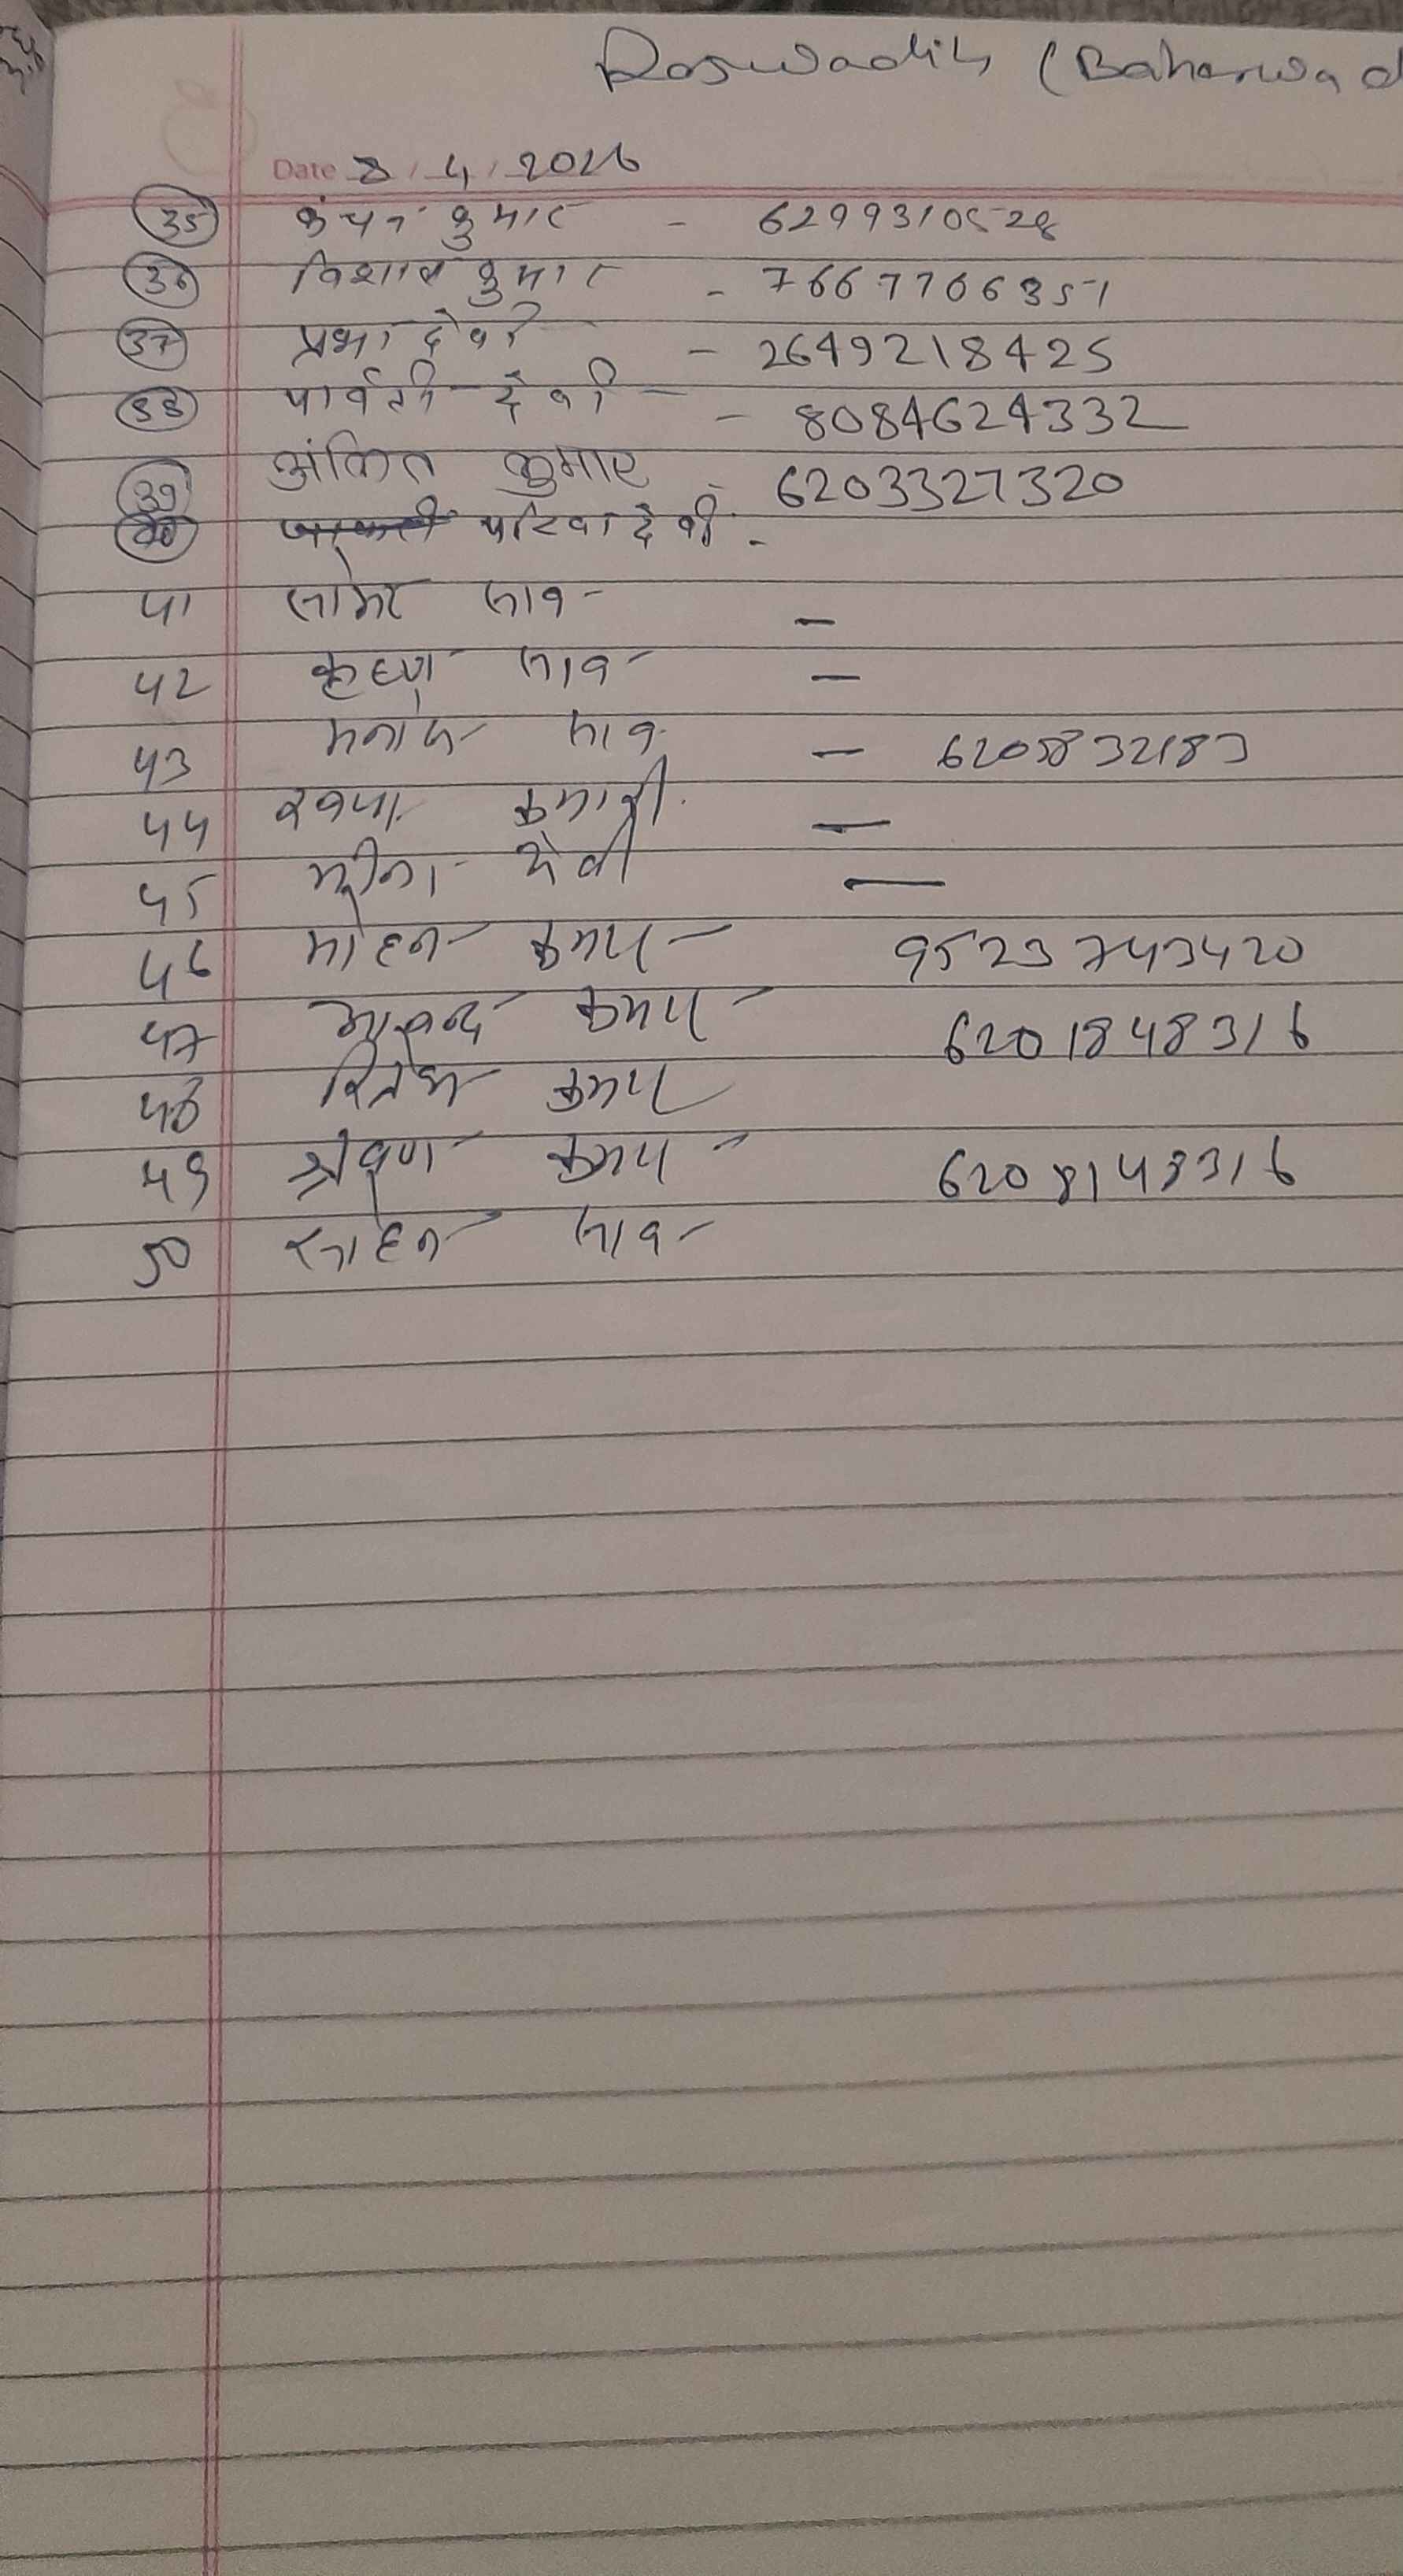 (Baharwad
Date 8/4/2026
35 कंचन कुमार - 6299310528
36 विशाल कुमार - 7667706351
37 प्रभा देवी - 2649218425
38 पार्वती देवी - 8084624332
39 अंकित कुमार - 6203327320
40 देवी -
41 साव -
42 कृष्ण साव -
43 साव - 6205832183
44 कुमारी -
45 मीना देवी -
46 मोहन कुमार 9523743420
47 कुमार 6201848316
48 कुमार
49 श्रवण कुमार 6208148316
50 साव